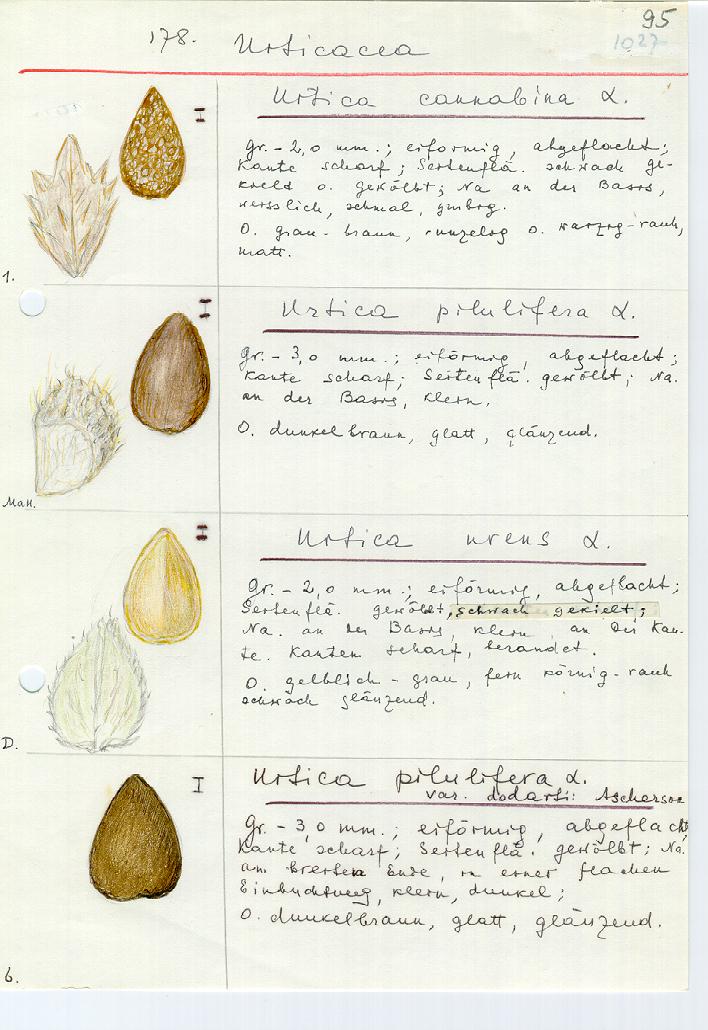 95
178. Urticacea
1027
Urtica cannabina L.
Gr. - 2,0 mm.; eiförmig, abgeflacht;
Kante scharf; Seitenflä. schwach ge-
kielt o. gewölbt; Na an der Basis,
weisslich, schmal,
O. grau-braun, runzelig o. warzig-rauh,
matt.
1.
Urtica pilulifera L.
Gr. - 3,0 mm.; eiförmig, abgeflacht;
Kante scharf; Seitenflä. gewölbt; Na.
an der Basis, klein.
O. dunkelbraun, glatt, glänzend.
Man.
Urtica urens L.
Gr. - 2,0 mm.; eiförmig, abgeflacht;
Seitenflä. gewölbt, schwach gekielt;
Na. an der Basis, klein, an der Kan-
te. Kanten scharf, berandet.
O. gelblich-grau, fein körnig-rauh
schwach glänzend.
D.
Urtica pilulifera L.
var. dodartii Ascherson
Gr. - 3,0 mm.; eiförmig, abgeflacht
Kante scharf; Seitenflä. gewölbt; Na.
am breiten Ende, in einer flachen
Einbuchtung, klein, dunkel;
O. dunkelbraun, glatt, glänzend.
6.